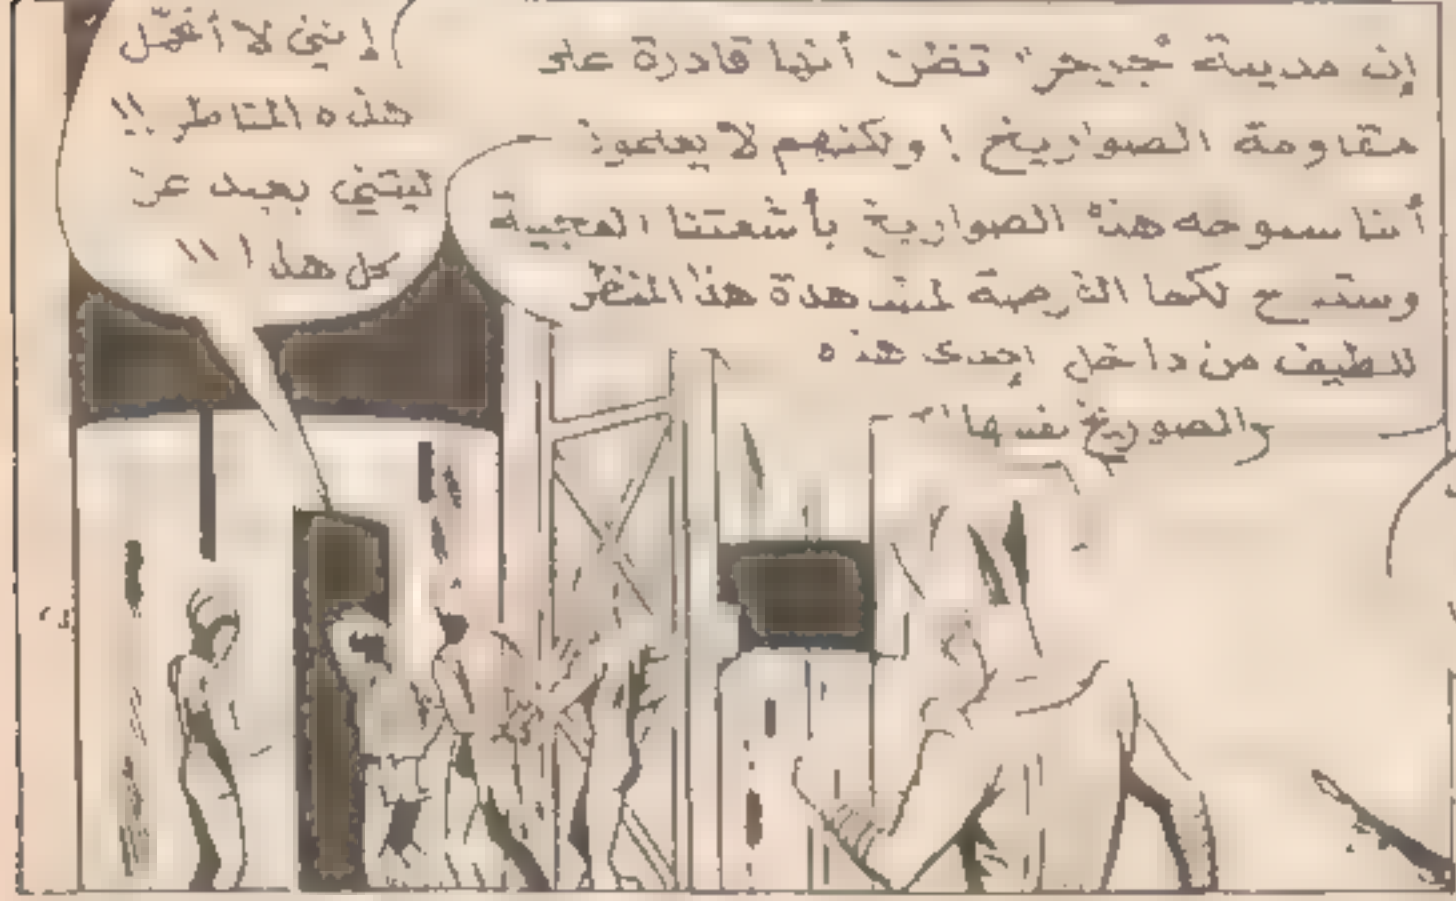 إن مدينة "جيجر" تظن أنها قادرة على
مقاومة الصواريخ ! ولكنهم لا يعلمون
أننا سنوجه هذه الصواريخ بأشعتنا العجيبة
وستتاح لكما الفرصة لمشاهدة هذا المنظر
اللطيف من داخل إحدى هذه
الصواريخ نفسها
إنني لا أتحمّل
هذه المناظر !!
ليتني بعيد عن
كل هذا !!